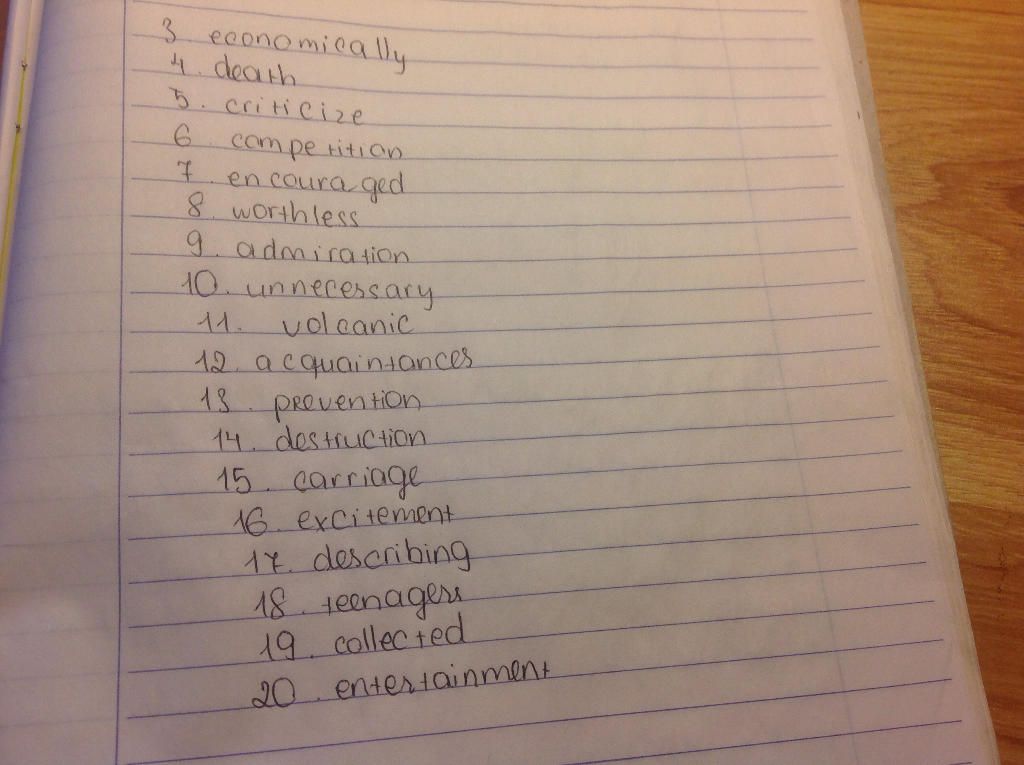 3 economically
4. death
5. criticize
6 competition
7 encouraged
8. worthless
9. admiration
10. unnecessary
11. volcanic
12. acquaintances
13. prevention
14. destruction
15. carriage
16. excitement
17. describing
18. teenagers
19. collected
20. entertainment